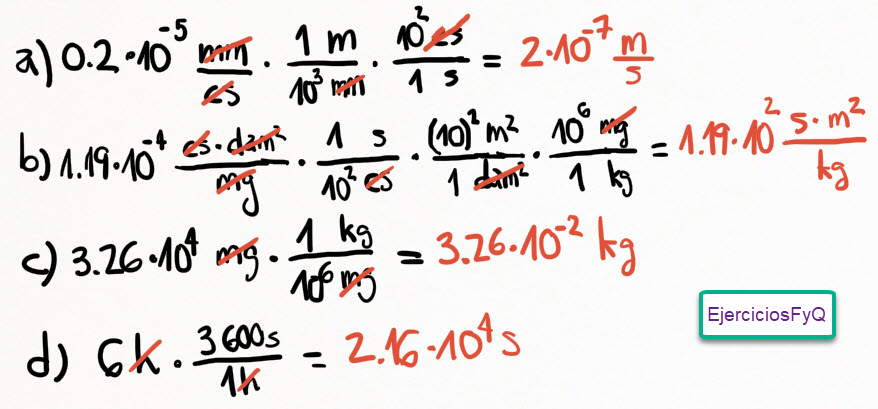 a) 0.2·10⁻⁵ mm/cs · 1 m/10³ mm · 10² cs/1 s = 2·10⁻⁷ m/s
b) 1.19·10⁻⁴ cs·dam²/mg · 1 s/10² cs · (10)² m²/1 dam² · 10⁶ mg/1 kg = 1.19·10² s·m²/kg
c) 3.26·10⁴ mg · 1 kg/10⁶ mg = 3.26·10⁻² kg
EjerciciosFyQ
d) 6 h · 3600s/1h = 2.16·10⁴ s